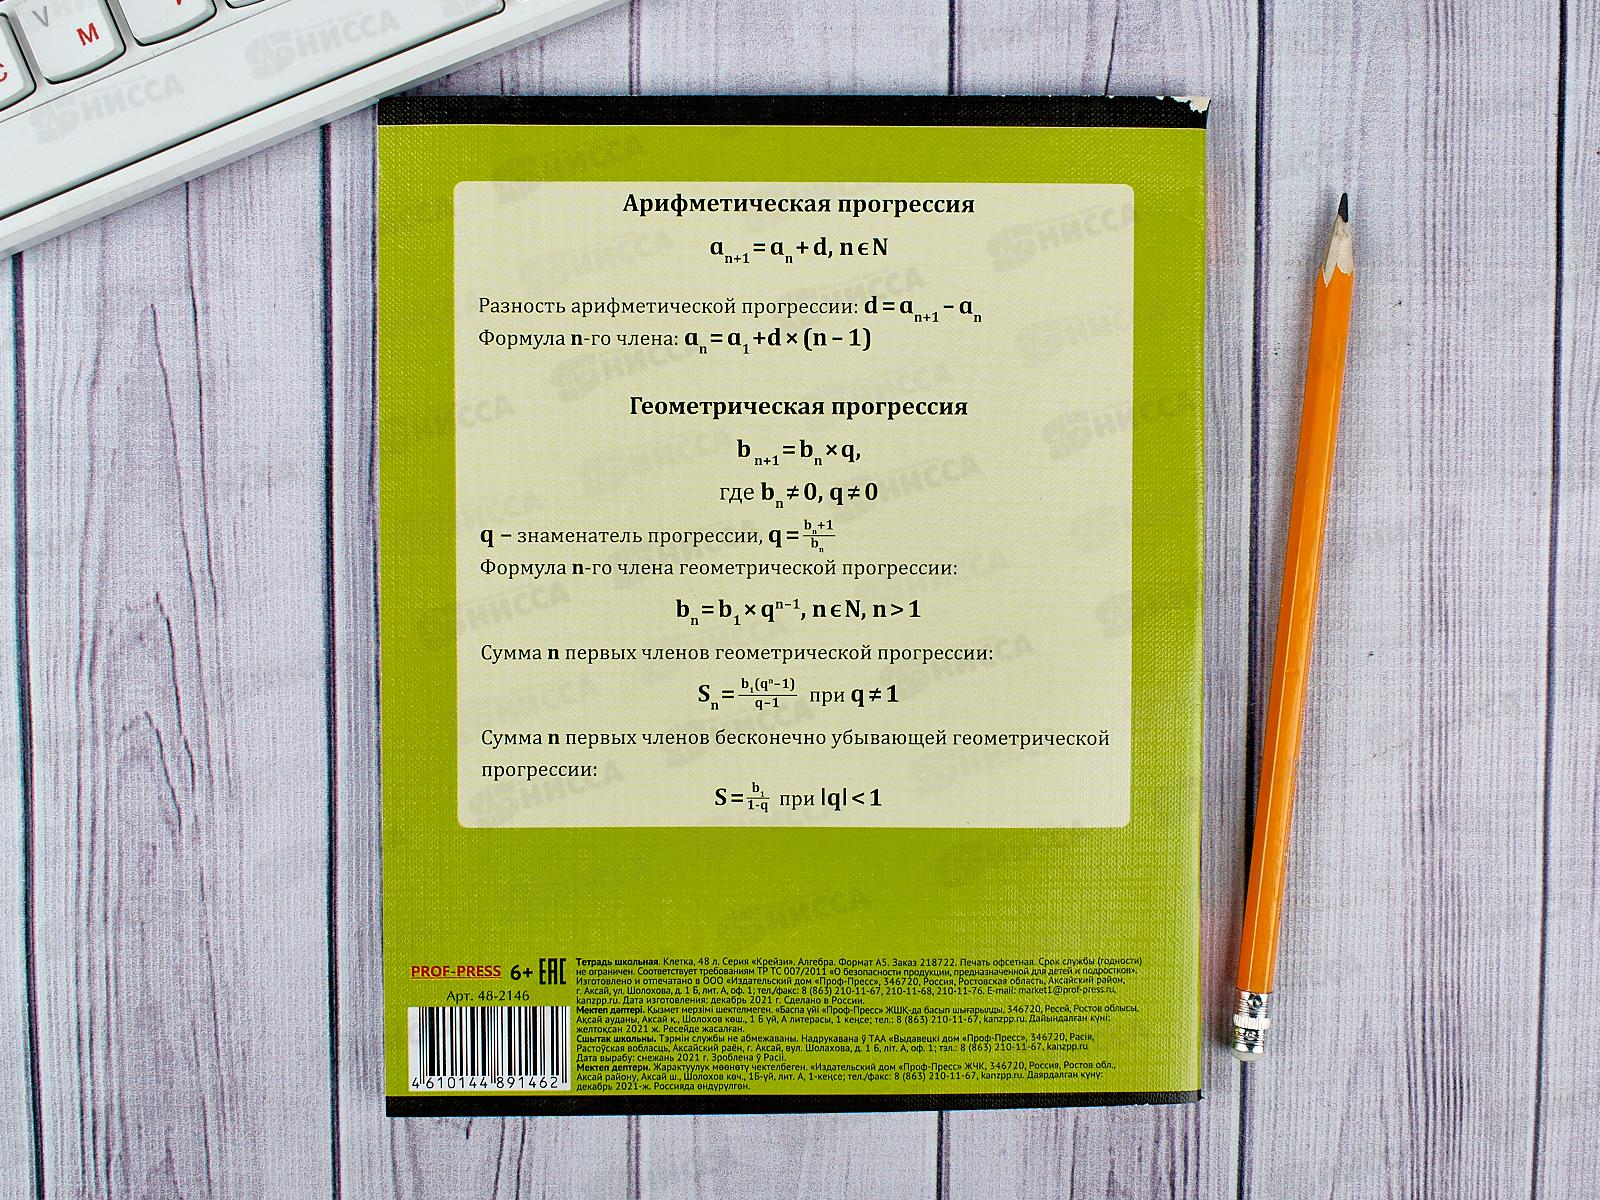 V
М
С
Арифметическая прогрессия
aₙ₊₁ = aₙ + d, n ϵ N
Разность арифметической прогрессии: d = aₙ₊₁ – aₙ
Формула n-го члена: aₙ = a₁ + d × (n – 1)
Геометрическая прогрессия
bₙ₊₁ = bₙ × q,
где bₙ ≠ 0, q ≠ 0
q – знаменатель прогрессии, q = (bₙ+1)/bₙ
Формула n-го члена геометрической прогрессии:
bₙ = b₁ × qⁿ⁻¹, n ϵ N, n > 1
Сумма n первых членов геометрической прогрессии:
Sₙ = b₁(qⁿ–1)/(q–1) при q ≠ 1
Сумма n первых членов бесконечно убывающей геометрической
прогрессии:
S = b₁/(1-q) при |q| < 1
PROF-PRESS 6+ EAC
Арт. 48-2146
4 610144 891462
Тетрадь школьная. Клетка, 48 л. Серия «Крейзи». Алгебра. Формат А5. Заказ 218722. Печать офсетная. Срок службы (годности)
не ограничен. Соответствует требованиям ТР ТС 007/2011 «О безопасности продукции, предназначенной для детей и подростков».
Изготовлено и отпечатано в ООО «Издательский дом «Проф-Пресс», 346720, Россия, Ростовская область, Аксайский район,
г. Аксай, ул. Шолохова, д. 1 Б, лит. А, оф. 1; тел./факс: 8 (863) 210-11-67, 210-11-68, 210-11-76. E-mail: market1@prof-press.ru,
kanzpp.ru. Дата изготовления: декабрь 2021 г. Сделано в России.
Мектеп дәптері. Қызмет мерзімі шектелмеген. «Баспа үйі «Проф-Пресс» ЖШҚ-да басып шығарылды, 346720, Ресей, Ростов облысы,
Ақсай ауданы, Аксай қ., Шолохов көш., 1 Б үй, А литерасы, 1 кеңсе; тел.: 8 (863) 210-11-67, kanzpp.ru. Дайындалған күні:
желтоқсан 2021 ж. Ресейде жасалған.
Сшытак школьны. Тэрмін службы не абмежаваны. Надрукавана ў ТАА «Выдавецкі дом «Проф-Пресс», 346720, Расія,
Растоўская вобласць, Аксайскі раён, г. Аксай, вул. Шолахава, д. 1 Б, літ. А, оф. 1; тэл.: 8 (863) 210-11-67, kanzpp.ru
Дата вырабу: снежань 2021 г. Зроблена ў Расіі.
Мектеп дептери. Жарактуулук мөөнөтү чектелбеген. «Издательский дом «Проф-Пресс» ЖЧК, 346720, Россия, Ростов обл.,
Аксай району, Аксай ш., Шолохов көч., 1Б-үй, лит. А, 1-кеңсе; тел./факс: 8 (863) 210-11-67, kanzpp.ru. Даярдалган күнү:
декабрь 2021-ж. Россияда өндүрүлгөн.
НИССА